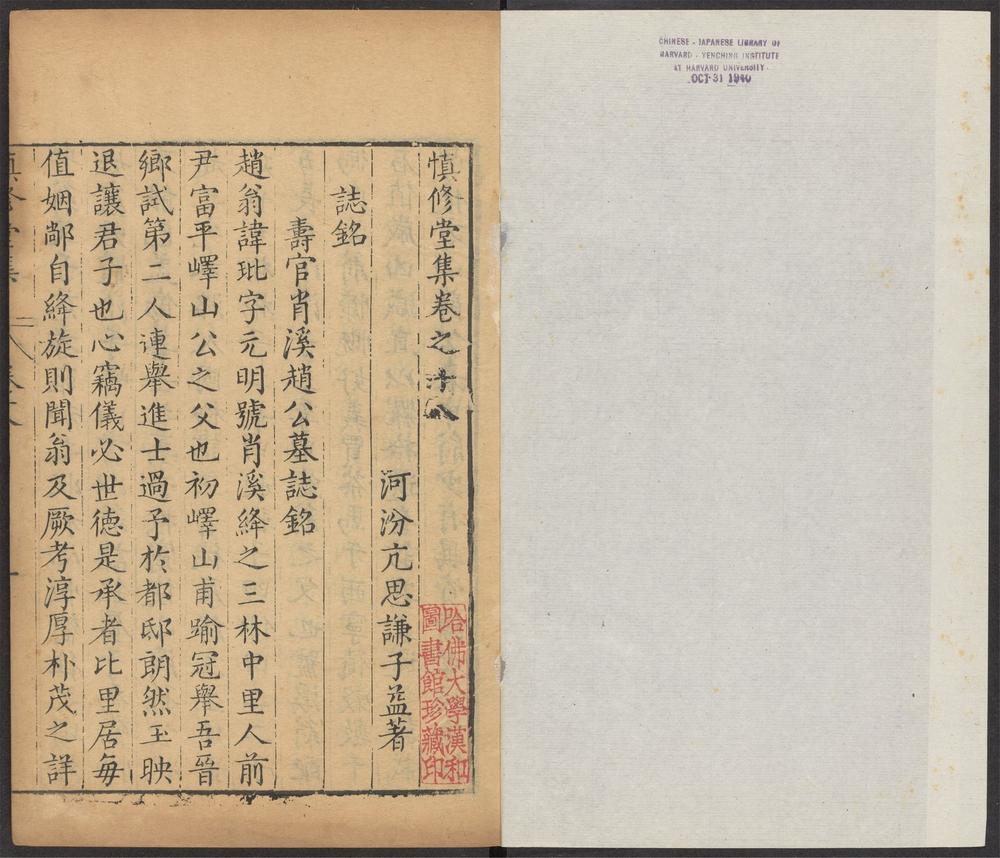 CHINESE - JAPANESE LIBRARY OF
HARVARD - YENCHING INSTITUTE
AT HARVARD UNIVERSITY
OCT 31 1940
慎修堂集卷之十八
河汾亢思謙子益著
誌銘
壽官肖溪趙公墓誌銘
趙翁諱玭字元明號肖溪絳之三林中里人前
尹富平嶧山公之父也初嶧山甫踰冠舉吾晉
鄉試第二人連舉進士過予於都邸朗然玉映
退讓君子也心竊儀必世德是承者比里居每
值姻鄰自絳旋則聞翁及厥考淳厚朴茂之詳
哈佛大學漢和
圖書館珍藏印